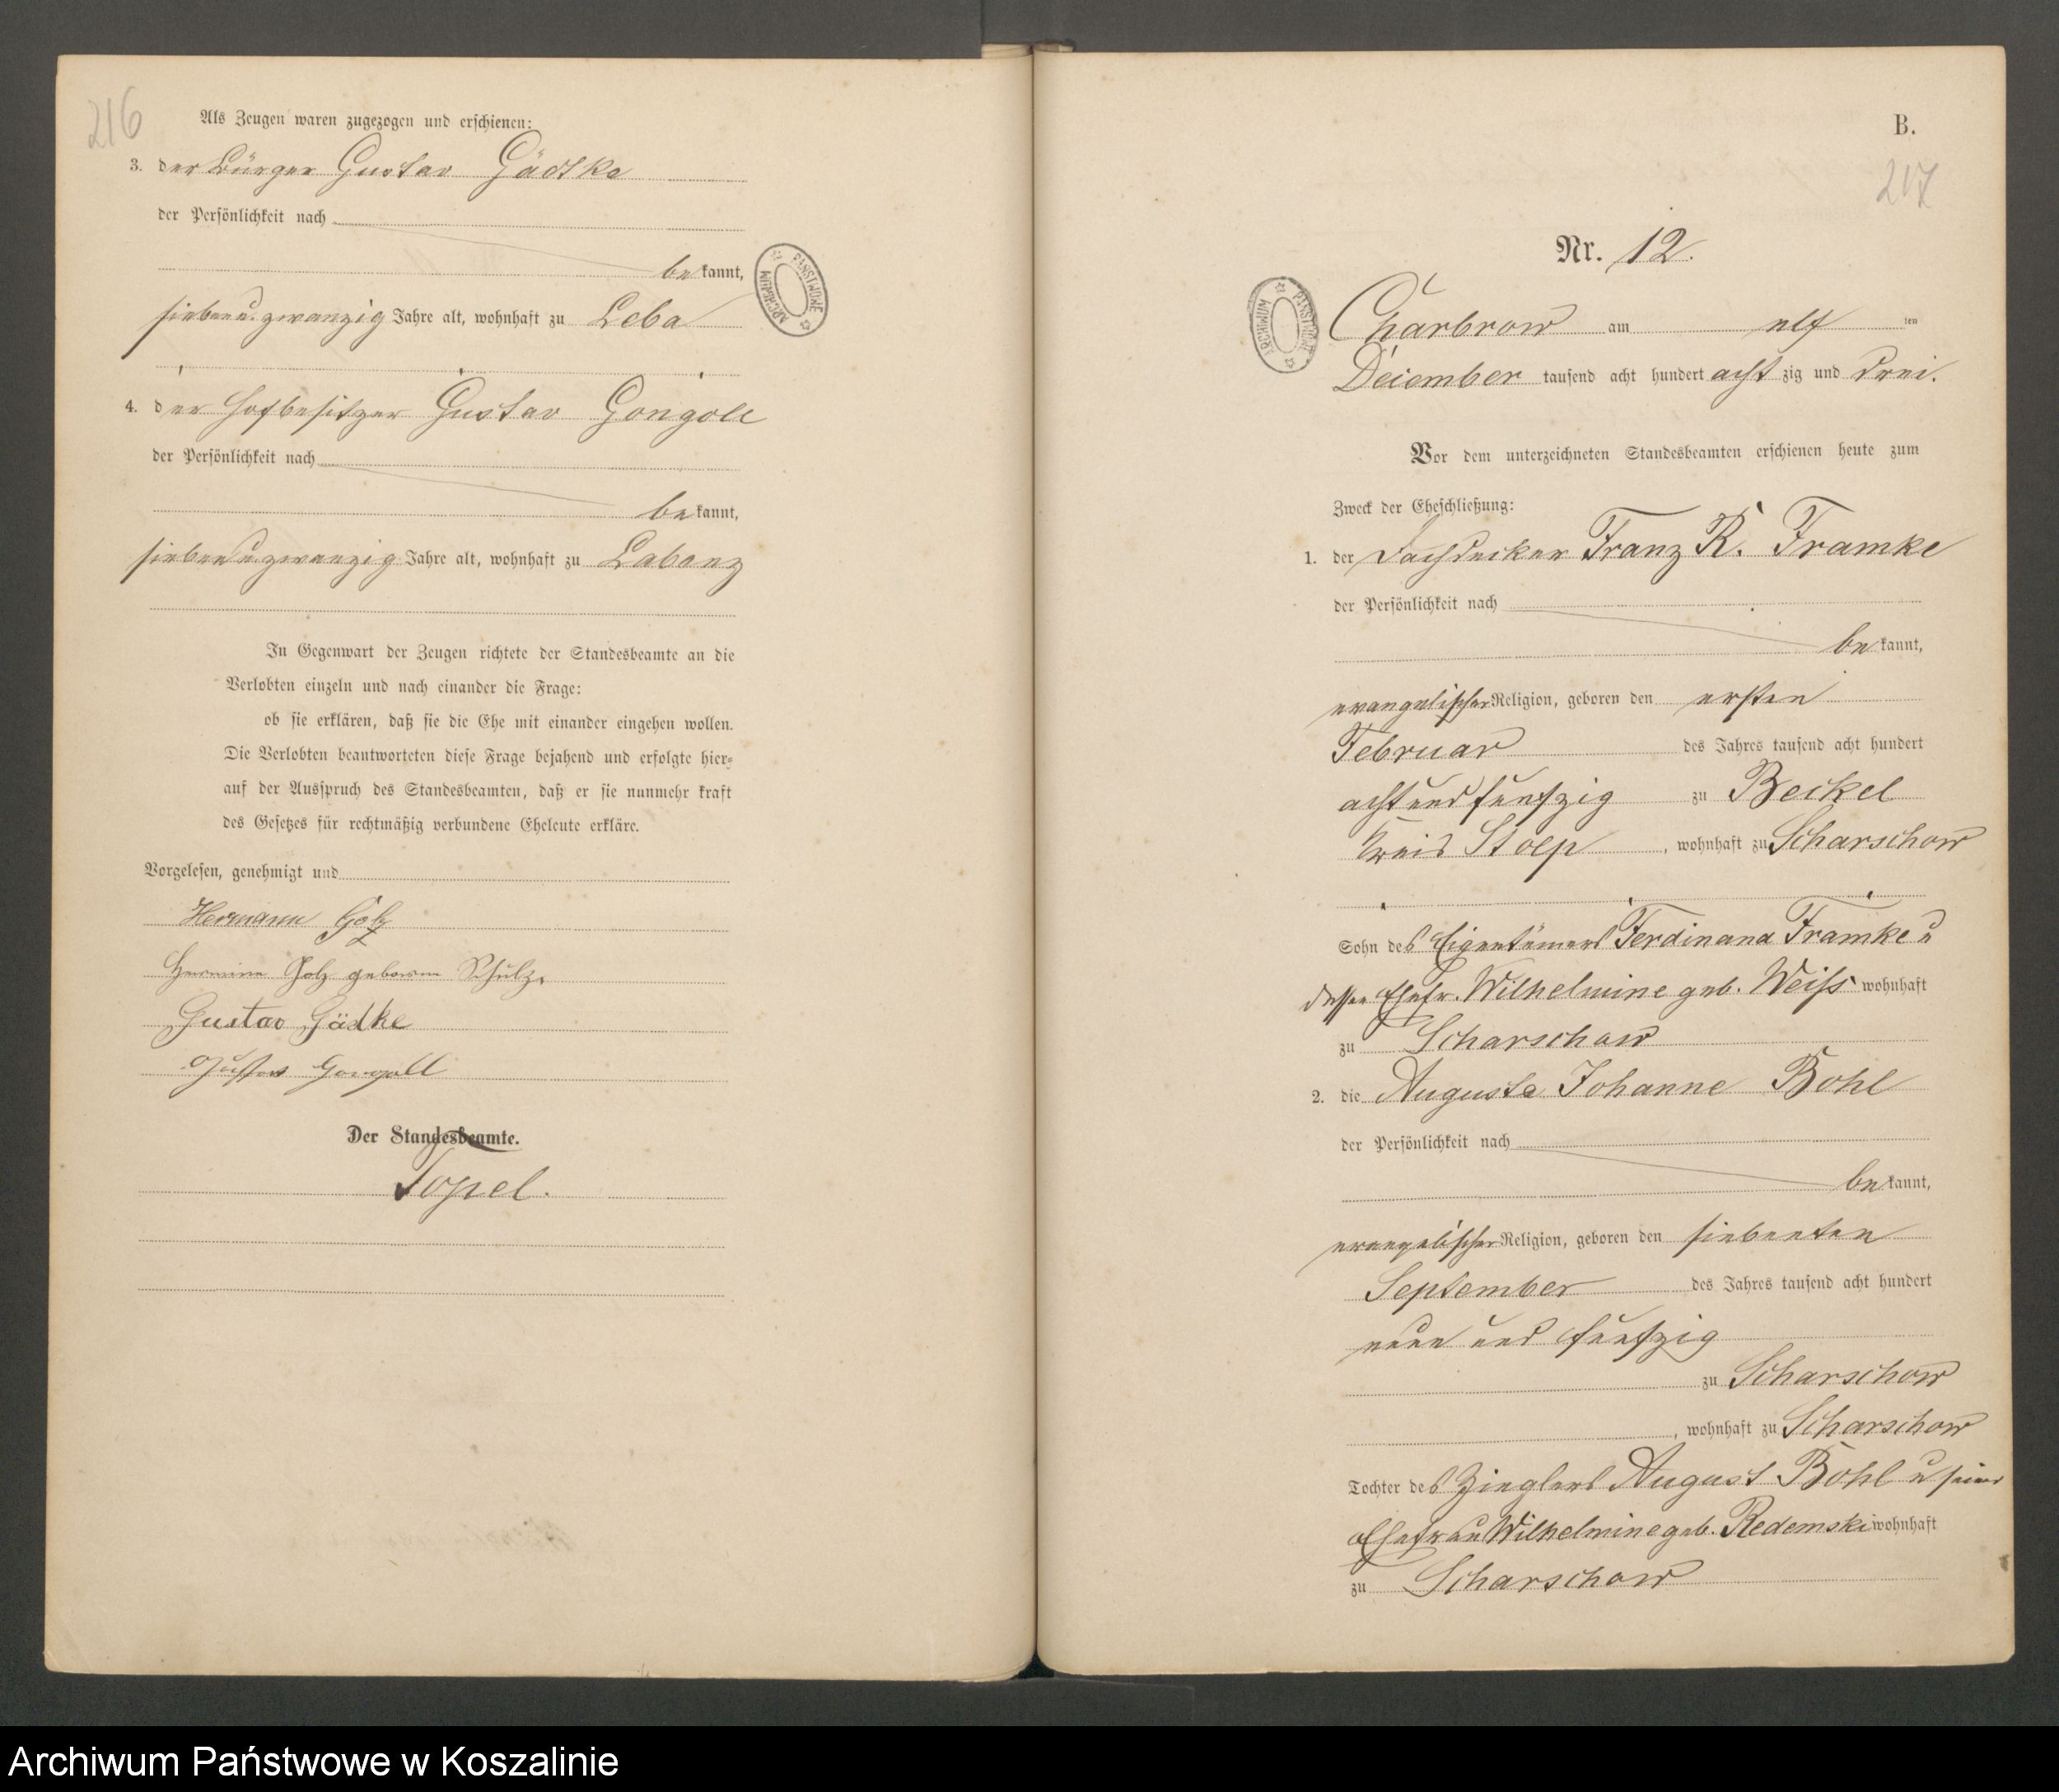 216
Als Zeugen waren zugezogen und erschienen:
3. der Bürger Gustav Gädtke
der Persönlichkeit nach
be kannt,
sieben u. zwanzig Jahre alt, wohnhaft zu Leba
4. der Hofbesitzer Gustav Gongoll
der Persönlichkeit nach
be kannt,
sieben u. zwanzig Jahre alt, wohnhaft zu Labenz
In Gegenwart der Zeugen richtete der Standesbeamte an die
Verlobten einzeln und nach einander die Frage:
ob sie erklären, daß sie die Ehe mit einander eingehen wollen.
Die Verlobten beantworteten diese Frage bejahend und erfolgte hier-
auf der Ausspruch des Standesbeamten, daß er sie nunmehr kraft
des Gesetzes für rechtmäßig verbundene Eheleute erkläre.
Vorgelesen, genehmigt und
Hermann Golz
Hermine Golz geborene Schulz.
Gustav Gädke
Gustav Gongoll
Der Standesbeamte.
Topel.
ARCHIWUM PAŃSTWOWE
B.
217
Nr. 12.
ARCHIWUM PAŃSTWOWE
Charbrow am elf ten
December tausend acht hundert acht zig und drei.
Vor dem unterzeichneten Standesbeamten erschienen heute zum
Zweck der Eheschließung:
1. der Dachdecker Franz R. Framke
der Persönlichkeit nach
be kannt,
evangelischer Religion, geboren den ersten
Februar des Jahres tausend acht hundert
acht und fünfzig zu Beckel
Kreis Stolp, wohnhaft zu Scharschow
Sohn des Eigentümers Ferdinand Framke u
dessen Ehefr. Wilhelmine geb. Weiss wohnhaft
zu Scharschow
2. die Auguste Johanne Bohl
der Persönlichkeit nach
be kannt,
evangelischer Religion, geboren den siebenten
September des Jahres tausend acht hundert
neun und fünfzig
zu Scharschow
, wohnhaft zu Scharschow
Tochter des Zieglers August Bohl u seiner
Ehefrau Wilhelmine geb. Redemski wohnhaft
zu Scharschow
Archiwum Państwowe w Koszalinie